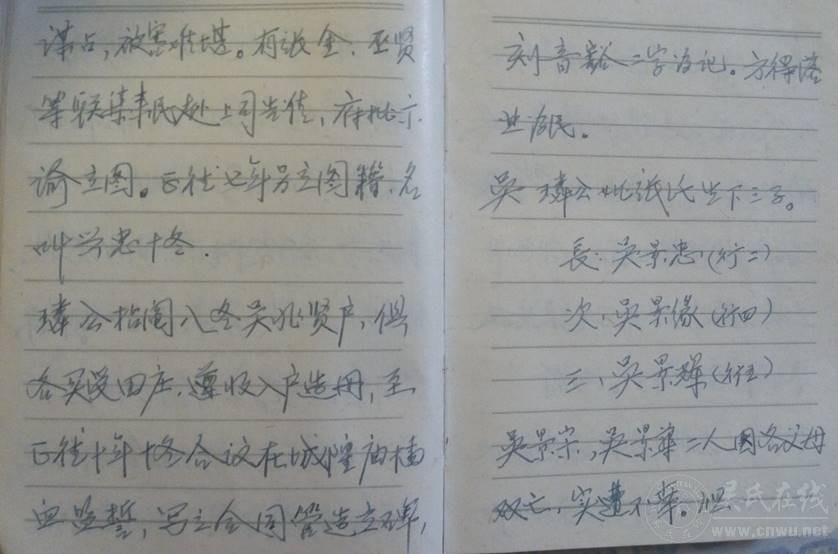 谋占，被害难堪。有张金、亚贤
等联集来民赴上司告值，府批示
谕立图。正德七年另立图籍，名
叫兴忠十冬。
璘公拈阄八冬吴兆贤户，但
各买受田庄，遵收入户造册，至
正德十年十冬合议在城隍庙插
血盟誓，写立合同管造立碑，
刻音豁二字为记。方得落
业为民。
吴璘公妣张氏生下三子。
長：吴景忠（行二）
次、吴景缘（行四）
三、吴景辉（行五）
吴景宗，吴景華二人因各父母
双亡，实遭不幸。但
吴氏在线
www.cnwu.net